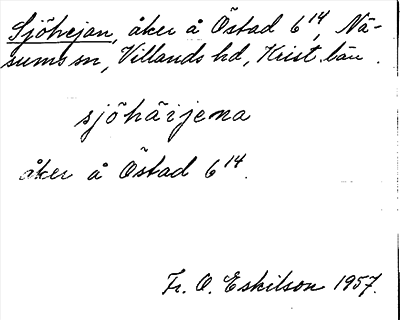 Sjöhejan, åker å Östad 6¹⁴, Nä-
sums sn, Villands hd, Krist. län.
sjöhäijena
åker å Östad 6¹⁴.
Fr. O. Eskilson 1957.